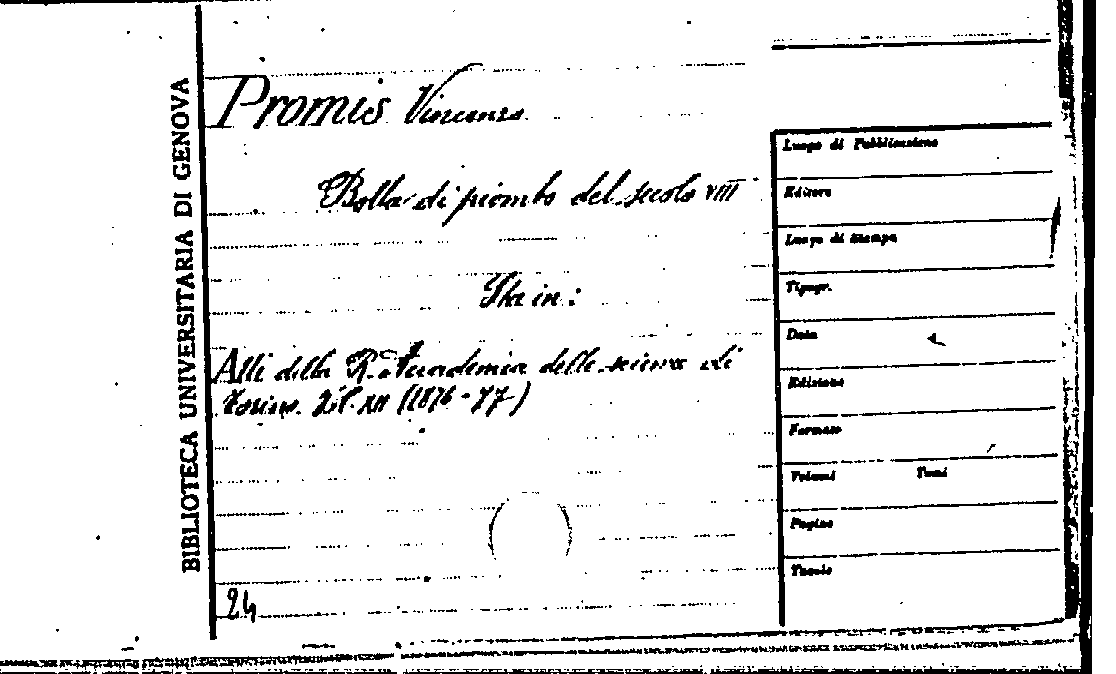 BIBLIOTECA UNIVERSITARIA DI GENOVA
Promis Vincenzo
Bolla di piombo del secolo VIII
Sta in:
Atti della R. Accademia delle scienze di
Torino. Vol. XII (1876-77)
24
Luogo di Pubblicazione
Editore
Luogo di Stampa
Tipogr.
Data
Edizione
Formato
Volumi Tomi
Pagine
Tavole